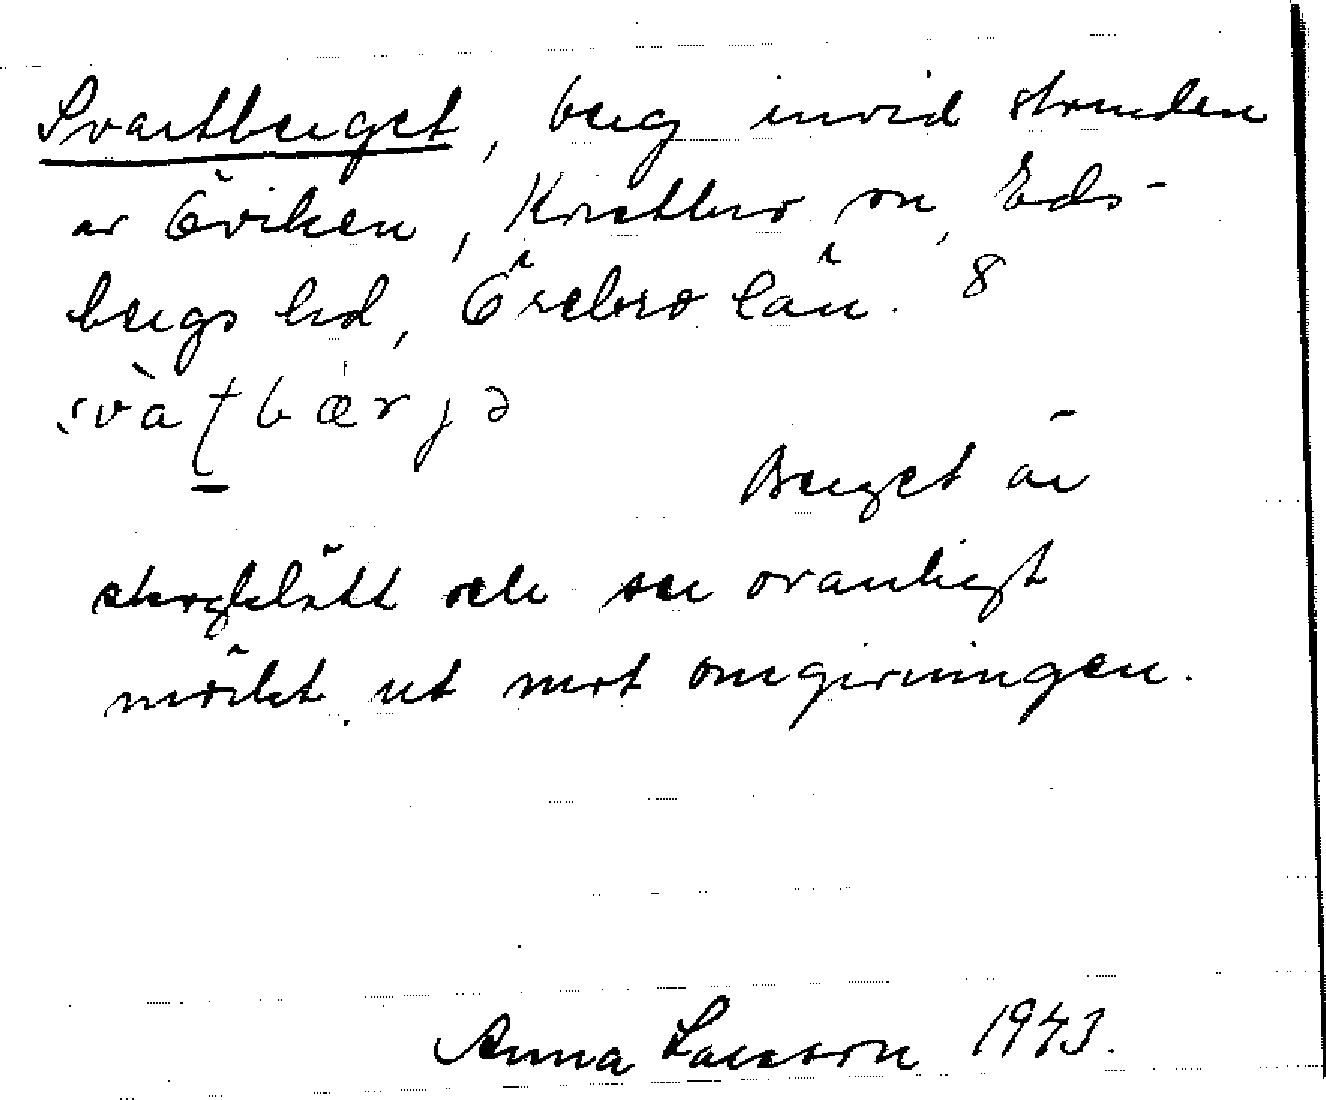 Svartberget, berg invid stranden
av Öviken, Knutbro sn, Eds-
bergs hd, Örebro län. 8
svàt̠bærjə
Berget är
skogklätt och ser ovanligt
mörkt ut mot omgivningen.
Anna Larsson 1943.